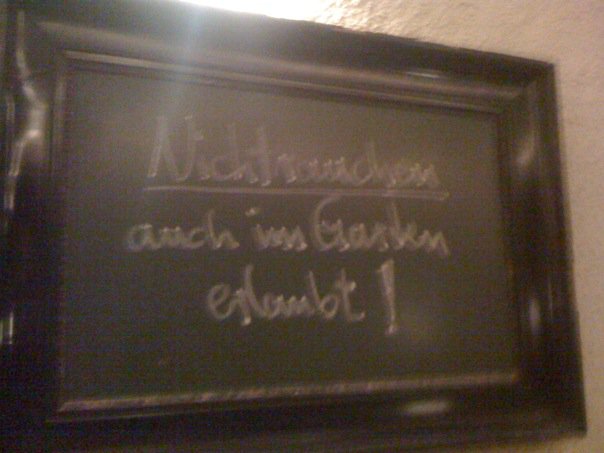 Nichtrauchen
auch im Garten
erlaubt!